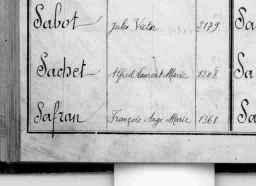 Sabot Jules Victor 2179
Sachet Alfred Laurent Marie 1208
Safran François Ange Marie 1361
Sa
Sa
Sa